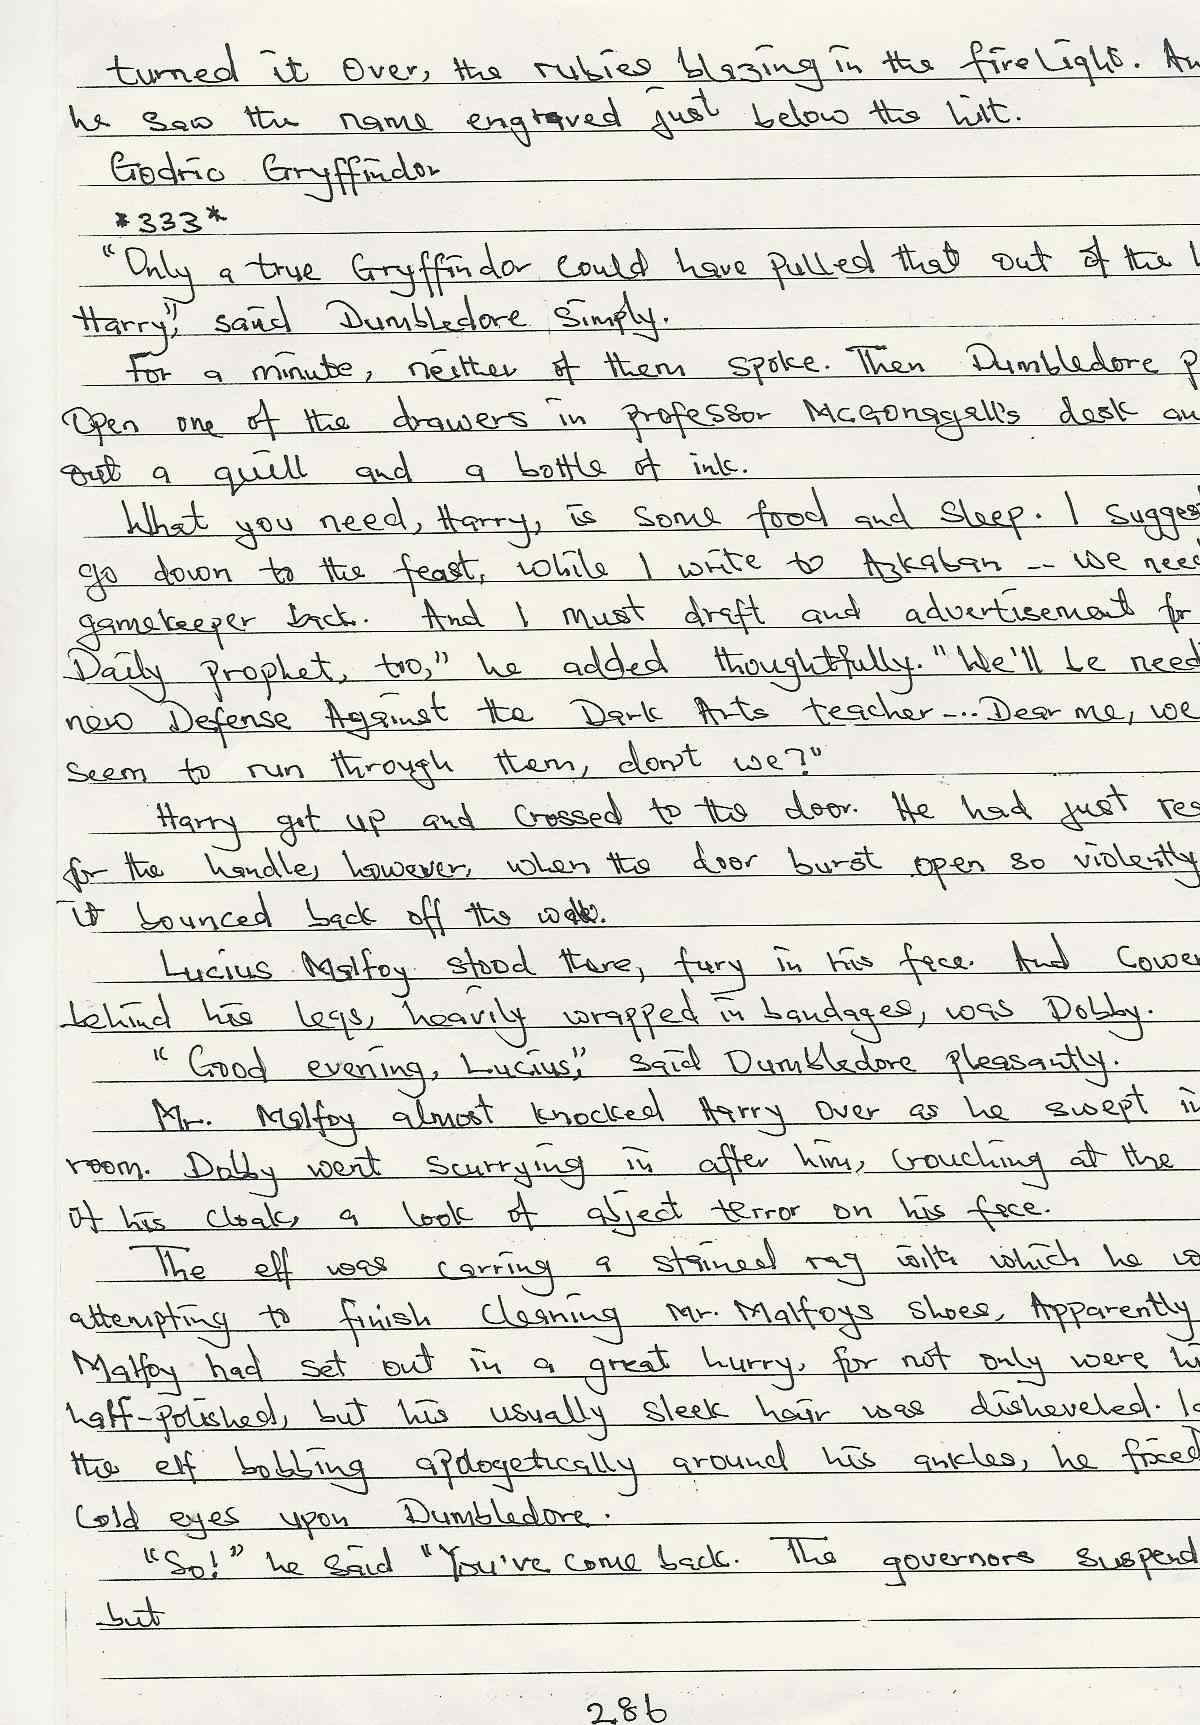 turned it Over, the rubies blazing in the fireLight. An
he saw the name engraved just below the hilt.
Godric Gryffindor
*333*
"Only a true Gryffindor Could have pulled that out of the
Harry," said Dumbledore Simply.
For a minute, neither of them spoke. Then Dumbledore p
Open one of the drawers in professor McGonaggell's desk an
out a quill and a bottle of ink.
What you need, Harry, is Some food and Sleep. I Sugges
go down to the feast, while I write to Azkaban -- we need
gamekeeper back. And I must draft and advertisement for
Daily prophet, too," he added thoughtfully. "We'll be need
new Defense Against the Dark Arts teacher-... Dear me, we
Seem to run through them, don't we?"
Harry got up and Crossed to the door. He had just rea
for the handle, however, when the door burst open so violently
it bounced back off the
Lucius Malfoy stood there, fury in his face. And Cower
behind his legs, heavily wrapped in bandages, was Dobby.
"Good evening, Lucius," said Dumbledore pleasantly.
Mr. Malfoy almost knocked Harry Over as he swept in
room. Dobby went scurrying in after him, Crouching at the
of his cloak, a look of abject terror on his face.
The elf was carring a stained rag with which he w
attempting to finish cleaning Mr. Malfoys shoes, Apparently
Malfoy had set out in a great hurry, for not only were hi
half-polished, but his usually sleek hair was disheveled. Ig
the elf bobbing apologetically around his ankles, he fixed
Cold eyes upon Dumbledore.
"So!" he said "You've come back. The governors suspend
but
286